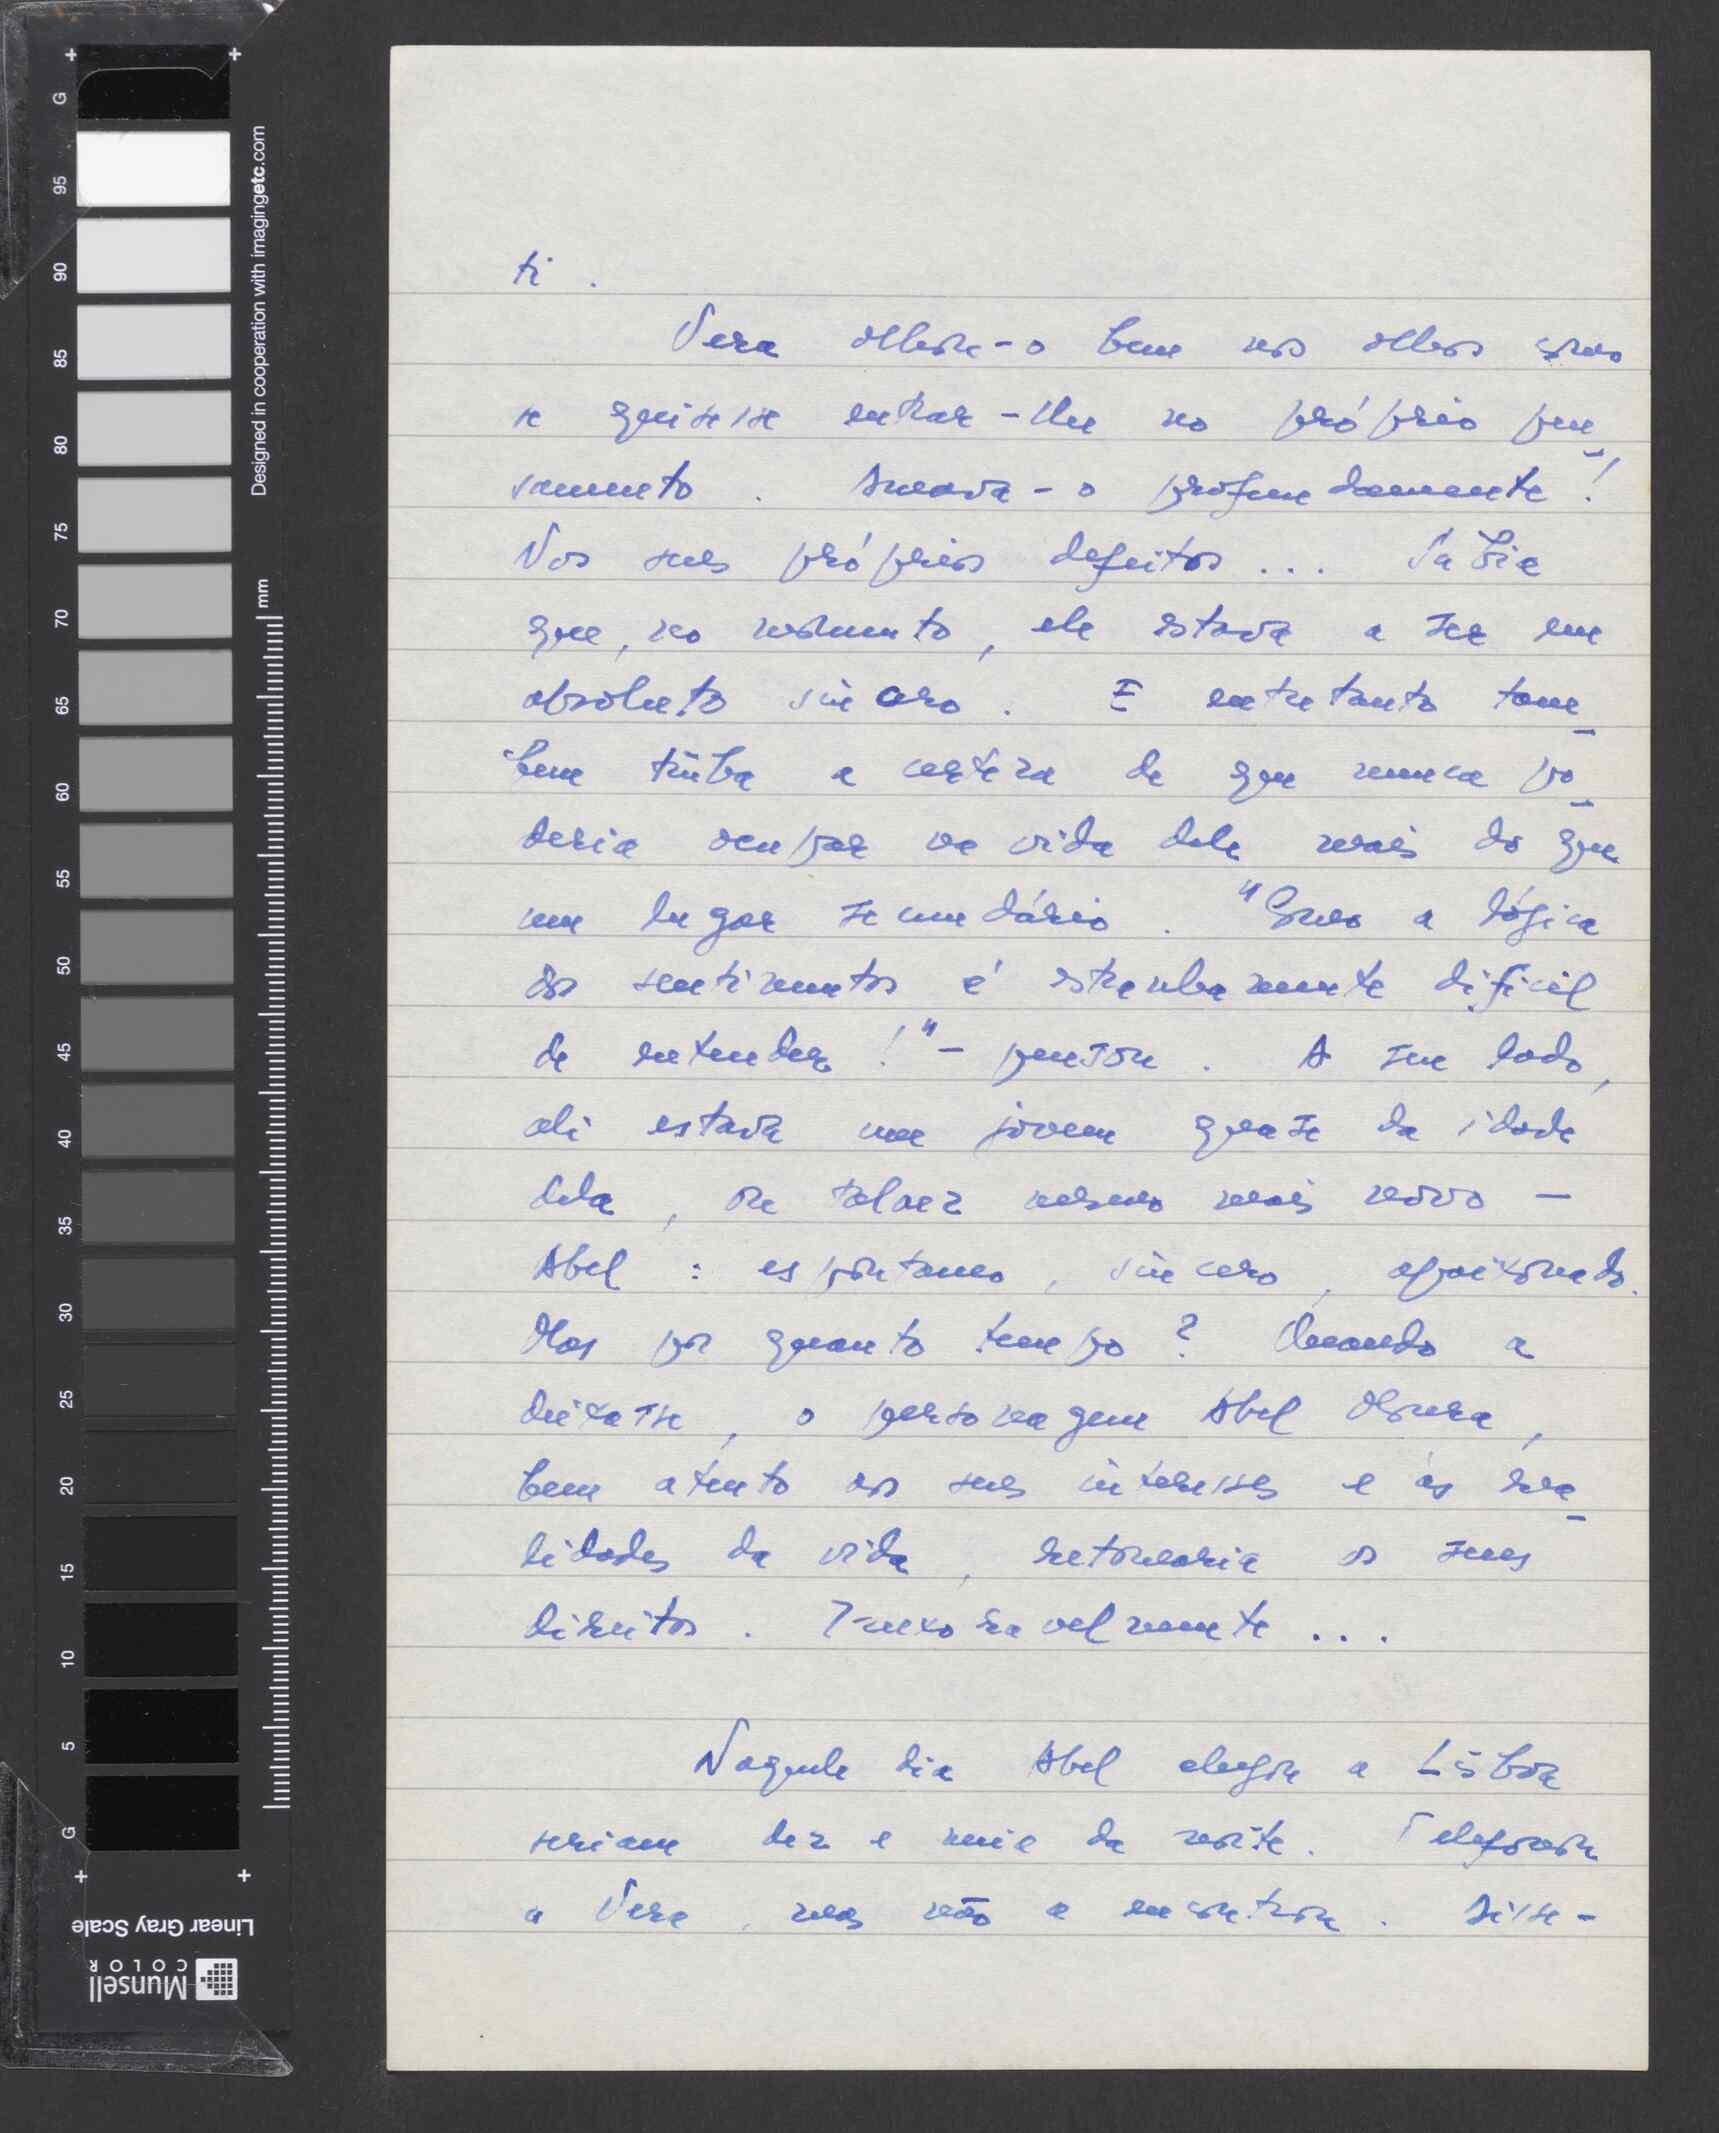 ti.
Vera olhou-o bem nos olhos como
se quisesse entrar-lhe no próprio pen-
samento. Amava-o profundamente!
Nos seus próprios defeitos... Sabia
que, no momento, ele estava a ser em
absoluto sincero. E entretanto tam-
bem tinha a certeza de que nunca po-
deria ocupar na vida dele mais do que
um lugar secundário. "Como a lógica
dos sentimentos é estranhamente dificil
de entender!" - pensou. A seu lado,
ali estava um jovem quase da idade
dela, ou talvez mesmo mais novo -
Abel: espontaneo, sincero, apaixonado.
Mas por quanto tempo? Quando a
deixasse, o personagem Abel Moura,
bem atento aos seus interesses e às rea-
lidades da vida, retomaria os seus
direitos. Inexoravelmente...
Naquele dia Abel chegou a Lisboa
seriam dez e meia da noite. Telefonou
a Vera, mas não a encontrou. Disse-
G
95
90
85
80
75
70
65
60
55
50
45
40
35
30
25
20
15
10
5
G
Designed in cooperation with imagingetc.com
mm
Linear Gray Scale
Munsell
COLOR